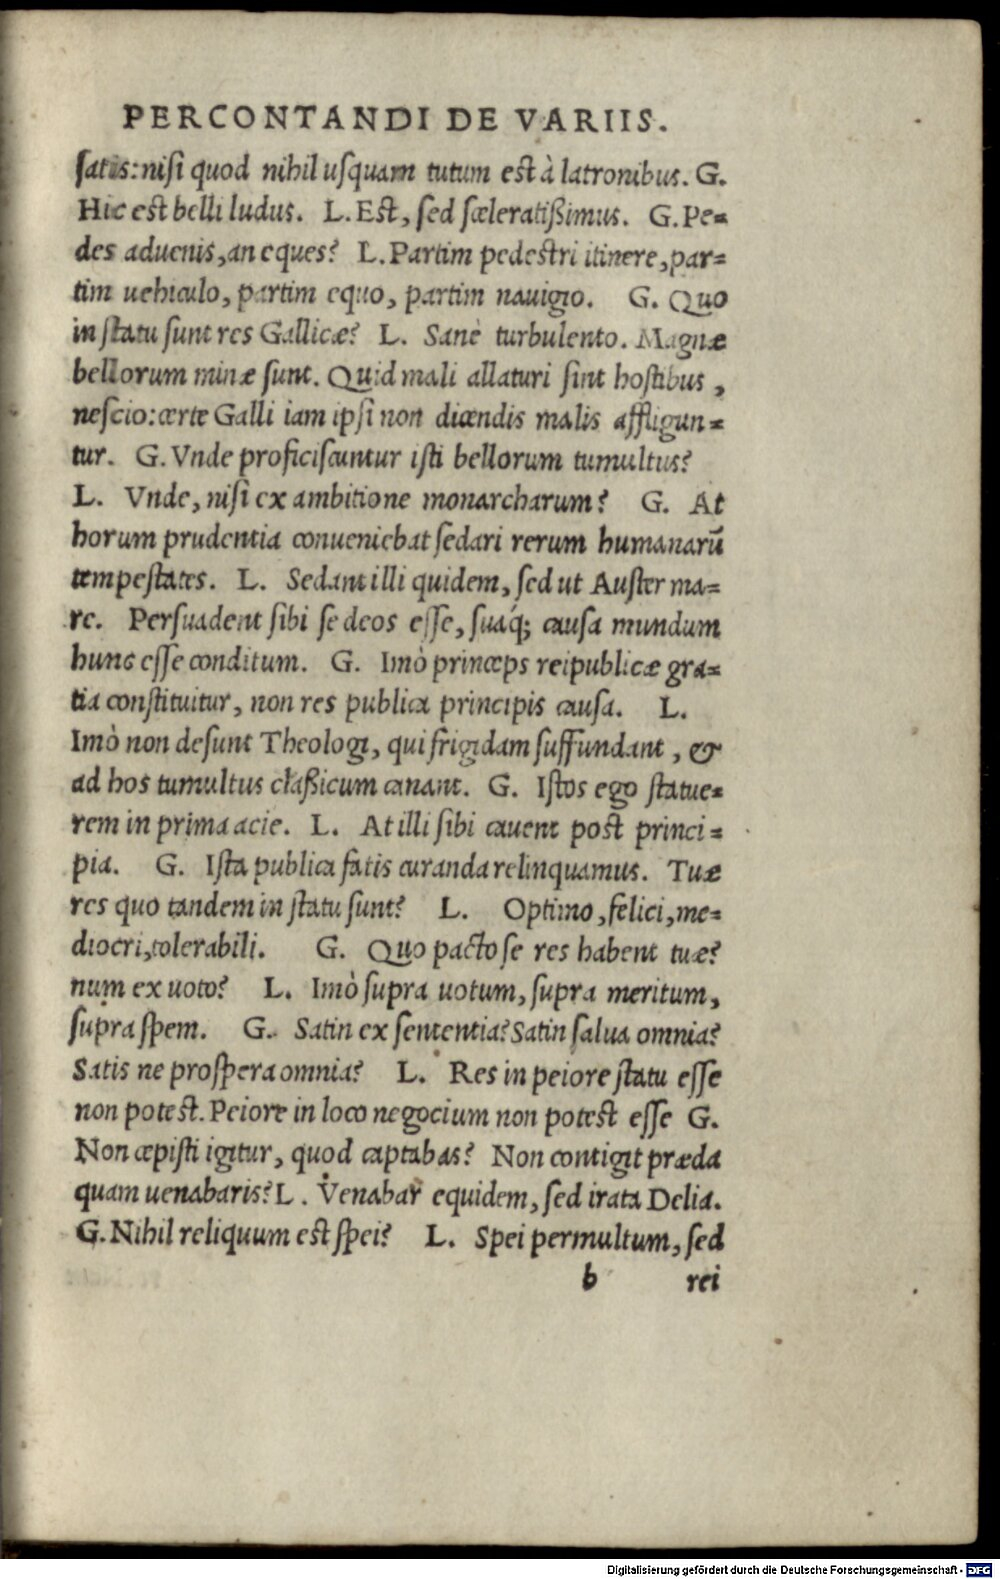 PERCONTANDI DE VARIIS.
satis: nisi quod nihil usquam tutum est à latronibus. G.
Hic est belli ludus. L. Est, sed sceleratißimus. G. Pe-
des aduenis, an eques? L. Partim pedestri itinere, par-
tim uehiculo, partim equo, partim nauigio. G. Quo
in statu sunt res Gallicæ? L. Sanè turbulento. Magnæ
bellorum minæ sunt. Quid mali allaturi sint hostibus,
nescio: certe Galli iam ipsi non dicendis malis affligun-
tur. G. Vnde proficiscuntur isti bellorum tumultus?
L. Vnde, nisi ex ambitione monarcharum? G. At
horum prudentia conueniebat sedari rerum humanarũ
tempestates. L. Sedant illi quidem, sed ut Auster ma-
re. Persuadent sibi se deos esse, suáq; causa mundum
hunc esse conditum. G. Imò princeps reipublicæ gra-
tia constituitur, non res publica principis causa. L.
Imò non desunt Theologi, qui frigidam suffundant, &
ad hos tumultus claßicum canant. G. Istos ego statue-
rem in prima acie. L. At illi sibi cauent post princi-
pia. G. Ista publica fatis curanda relinquamus. Tuæ
res quo tandem in statu sunt? L. Optimo, felici, me-
diocri, tolerabili. G. Quo pacto se res habent tuæ?
num ex uoto? L. Imò supra uotum, supra meritum,
supra spem. G. Satin ex sententia? Satin salua omnia?
Satis ne prospera omnia? L. Res in peiore statu esse
non potest. Peiore in loco negocium non potest esse G.
Non cepisti igitur, quod captabas? Non contigit præda
quam uenabaris? L. Venabar equidem, sed irata Delia.
G. Nihil reliquum est spei? L. Spei permultum, sed
b rei
Digitalisierung gefördert durch die Deutsche Forschungsgemeinschaft - DFG